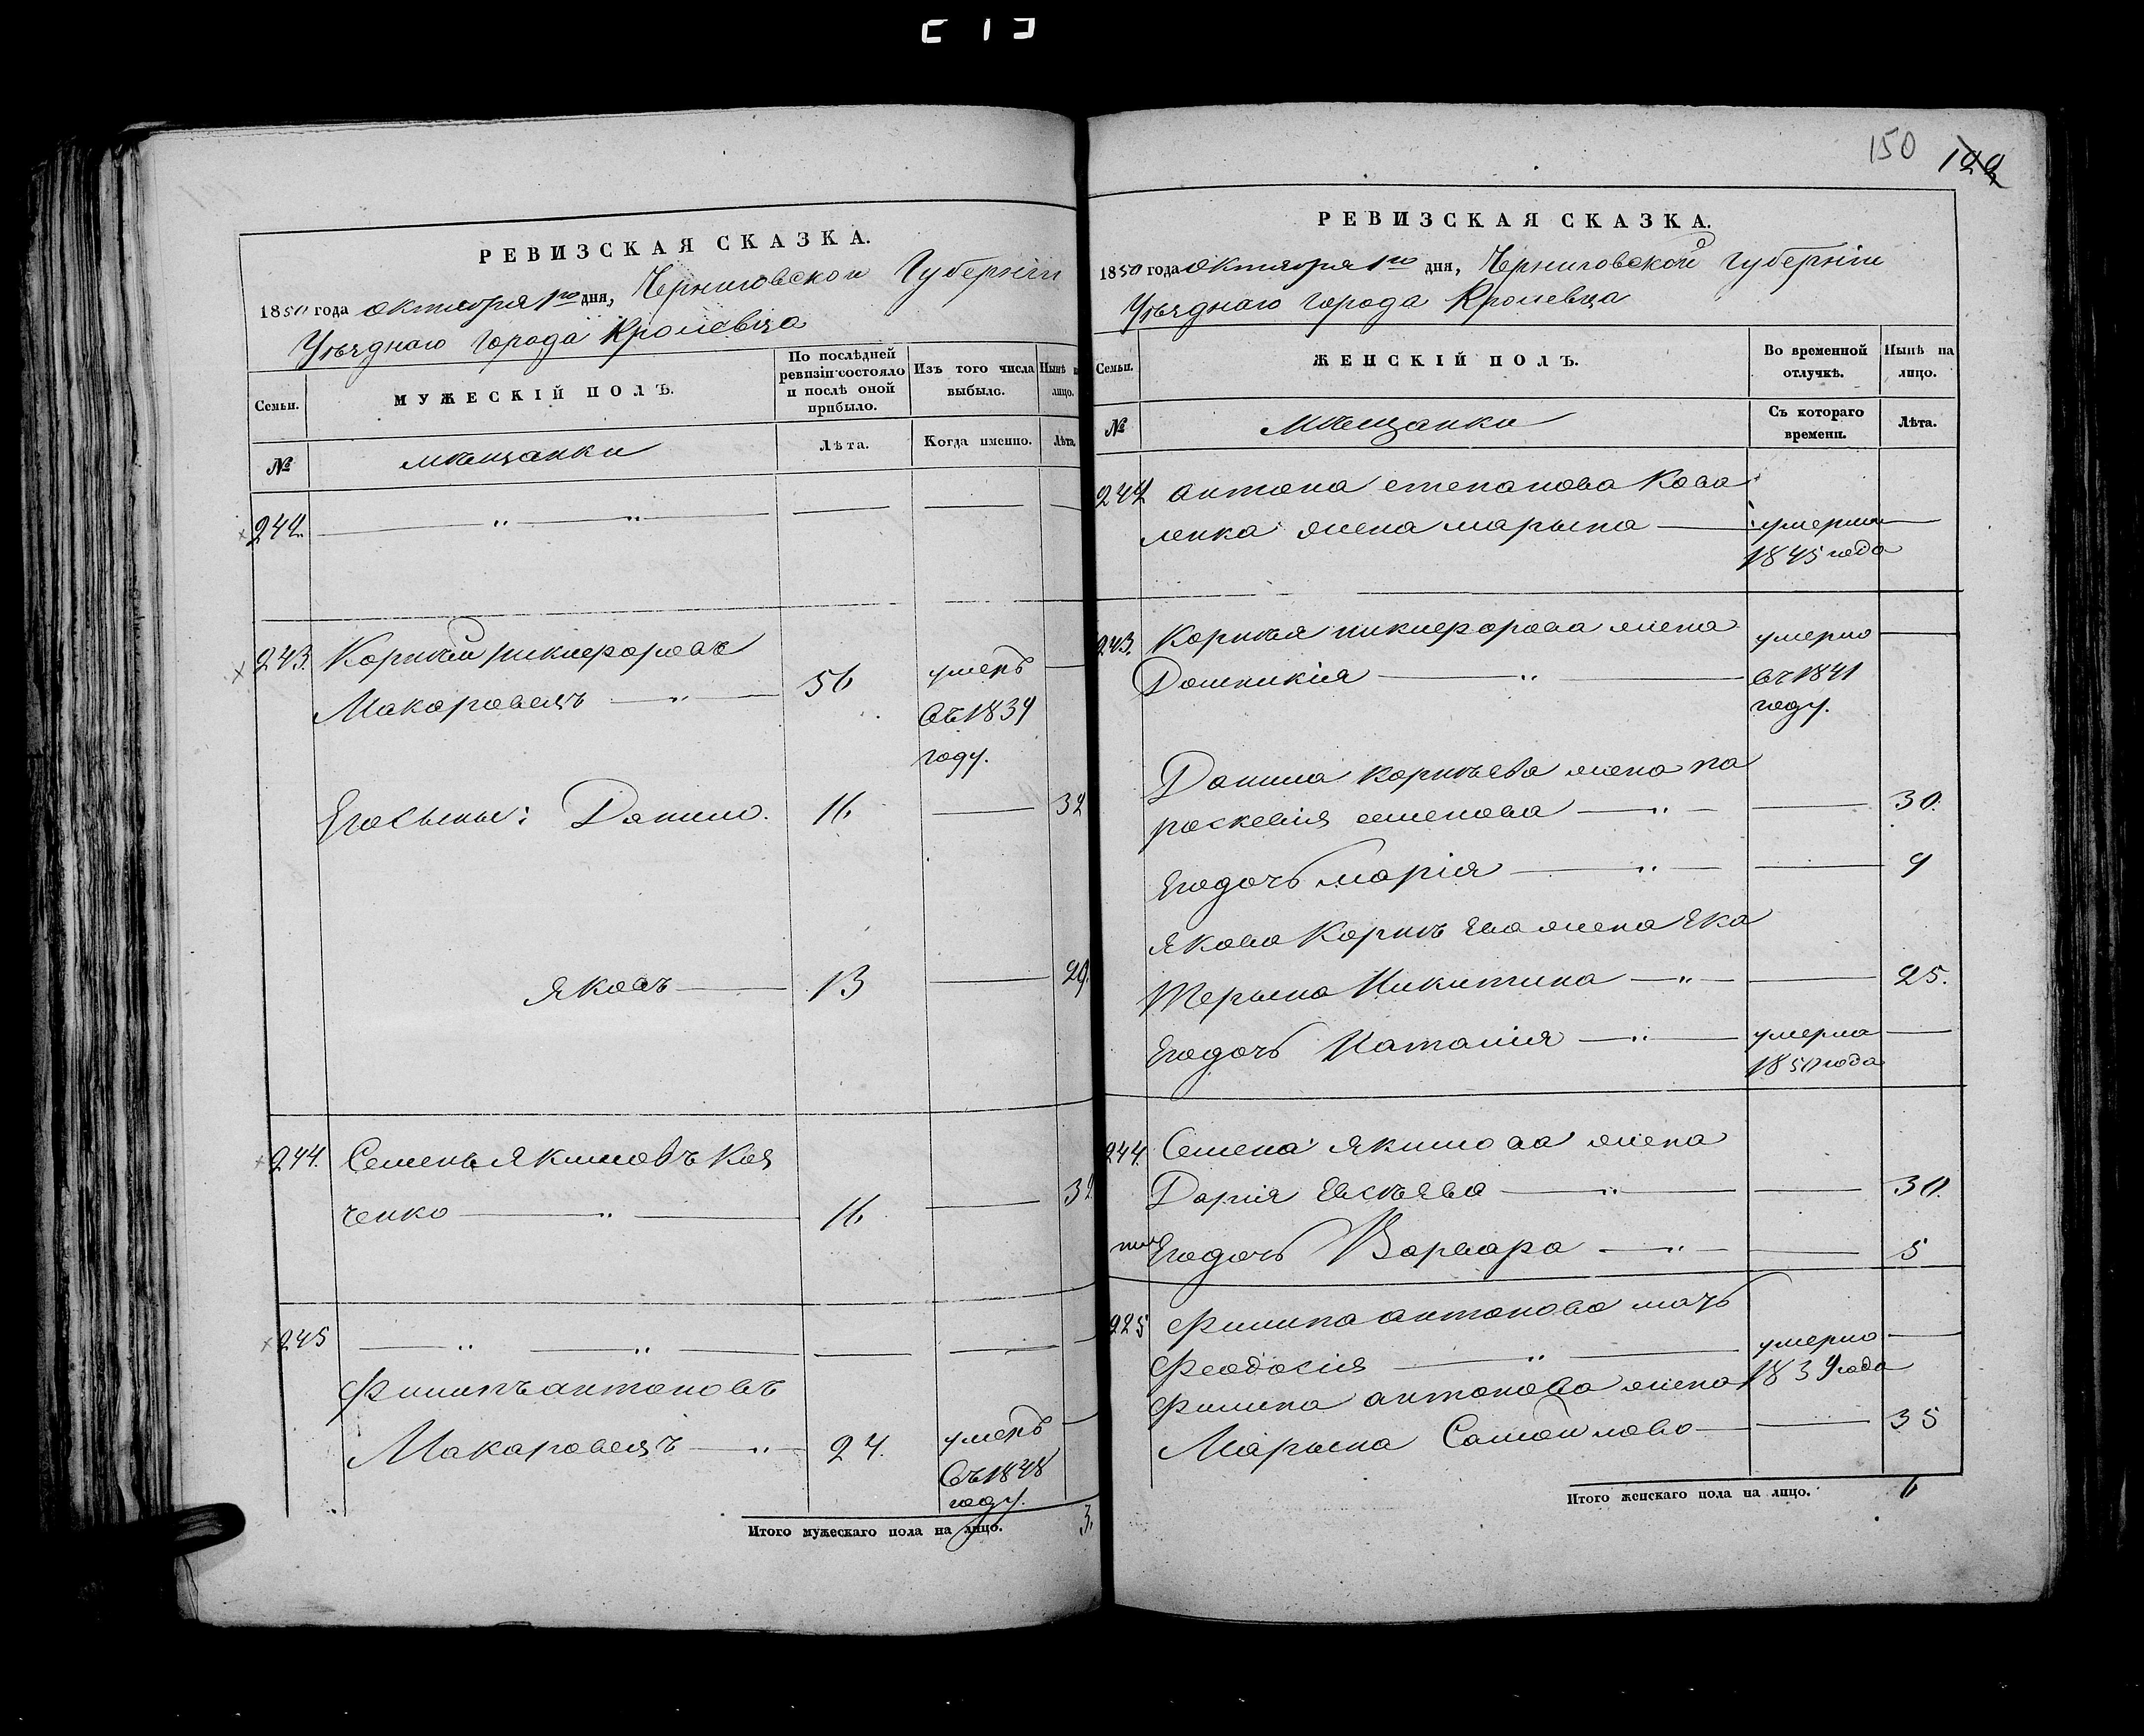 РЕВИЗСКАЯ СКАЗКА.
1850 года октября 1го дня, Черниговской Губерніи
Уѣзднаго города Кролевца
Семьи.
МУЖЕСКІЙ ПОЛЪ.
По послѣдней
ревизіи состояло
и послѣ оной
прибыло.
Изъ того числа
выбыло.
Нынѣ н
лицо.
№
мѣщанки
Лѣта.
Когда именно.
Лѣта.
242.
243. Корнѣй Никифоровъ
Макаровецъ 56 умеръ
въ 1839
году.
Его сыны: Данило. 16 32
Яковъ 13 29.
244. Семенъ Якимовъ Коз
ченко 16 32
245
Филипъ Антоновъ
Макаровецъ 24. умеръ
въ 1848
году.
Итого мужескаго пола на лицо. 3.
150 122
РЕВИЗСКАЯ СКАЗКА.
1850 года октября 1го дня, Черниговской Губерніи
Уѣзднаго города Кролевца
Семьи.
ЖЕНСКІЙ ПОЛЪ.
Во временной
отлучкѣ.
Нынѣ на
лицо.
№
мѣщанки
Съ котораго
времени.
Лѣта.
242 Антона Степанова Кова
ленка жена Марьяна умерла
1845 года
243. Корнѣя Никифорова жена умерла
Домникія въ 1841
году.
Данила Корнѣева жена Па
раскевія Семенова 30.
Его дочь Марія 9
Якова Корнѣева жена Ека
терина Никитина 25.
Его дочь Наталія умерла
1850 года
244. Семена Якимова жена
Дарія Евсѣева 30.
Его дочь Варвара 5
225 Филипа Антонова мать
Феодосія умерла
1839 года
Филипа Антонова жена
Марьяна Самойлова 35
Итого женскаго пола на лицо. 6